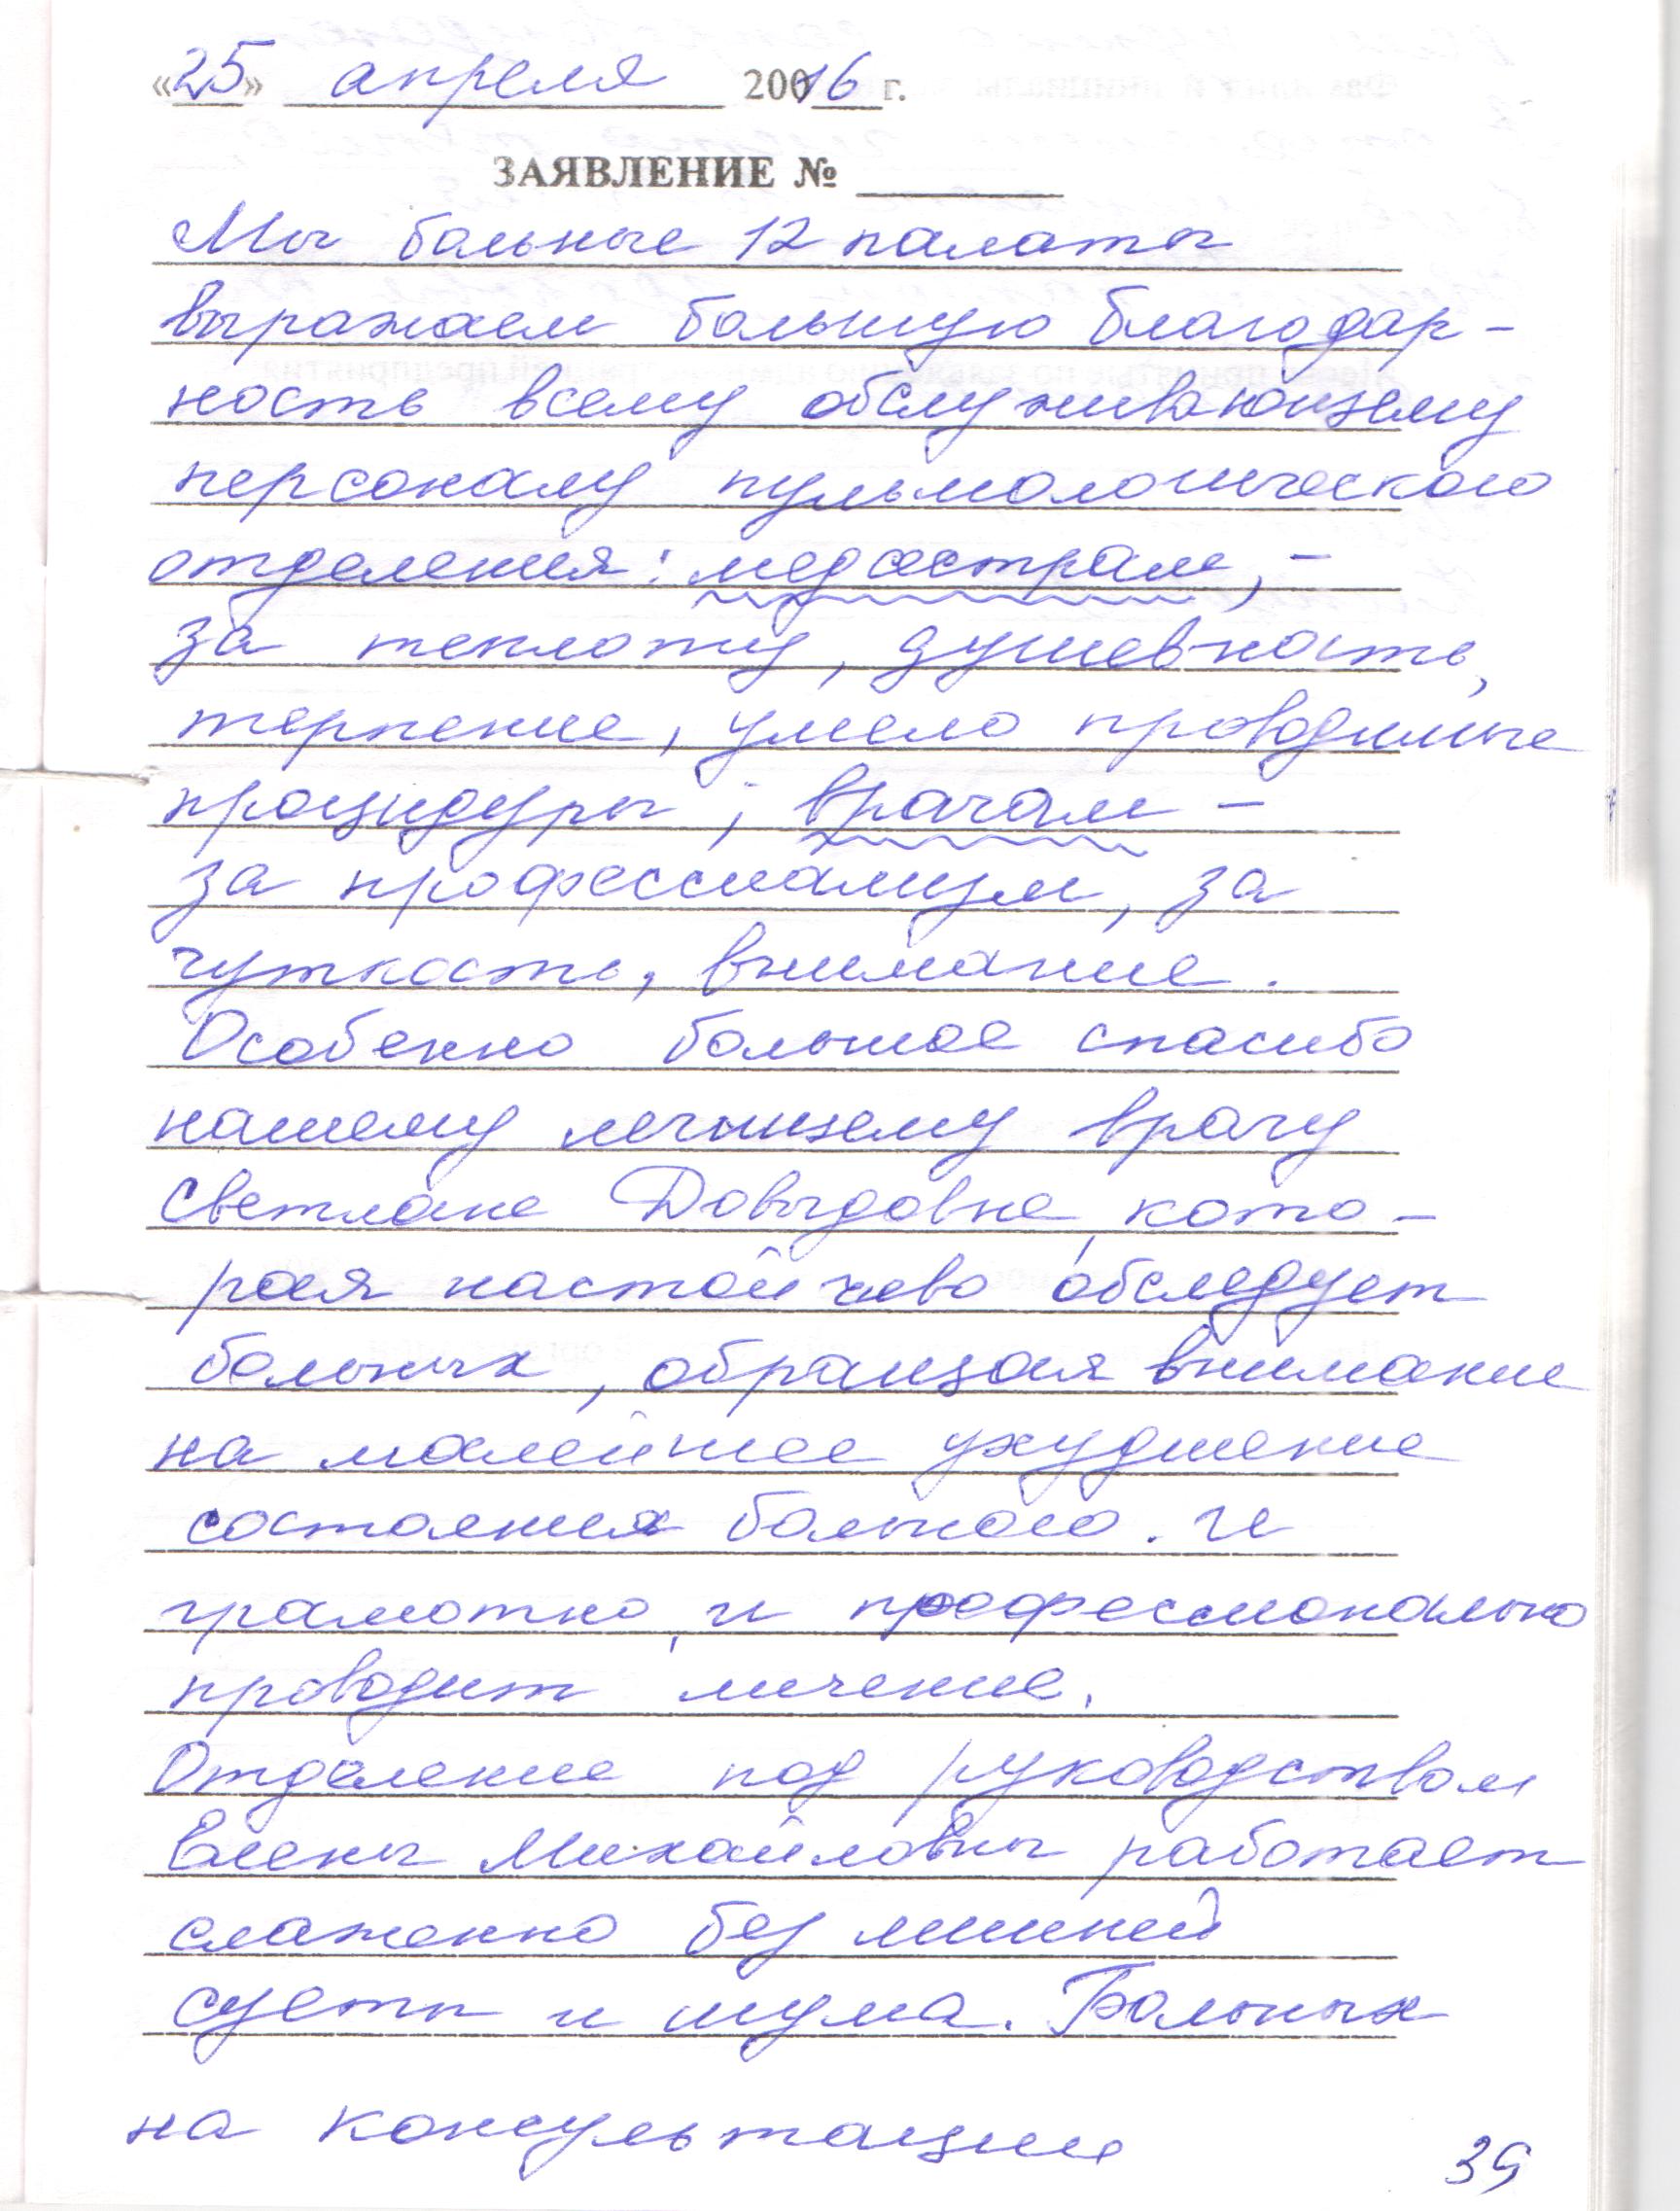 «25» апреля 20016 г.
ЗАЯВЛЕНИЕ №
Мы больные 12 палаты
выражаем большую благодар-
ность всему обслуживающему
персоналу пульмологического
отделения: медсестрам, -
за теплоту, душевность,
терпение, умело проводимые
процидуры; врачам -
за профессиализм, за
чуткость, внимание.
Особенно большое спасибо
нашему лечищему врачу
Светлане Довыдовне, кото-
рая настойчево обследует
больных, обращая внимание
на малейшее ухудшение
состояния больного. и
грамотно, и профессионально
проводит личение.
Отделение под руководством
Елены Михайловны работает
слаженно без лишней
суеты и шума. Больных
на консультации
39